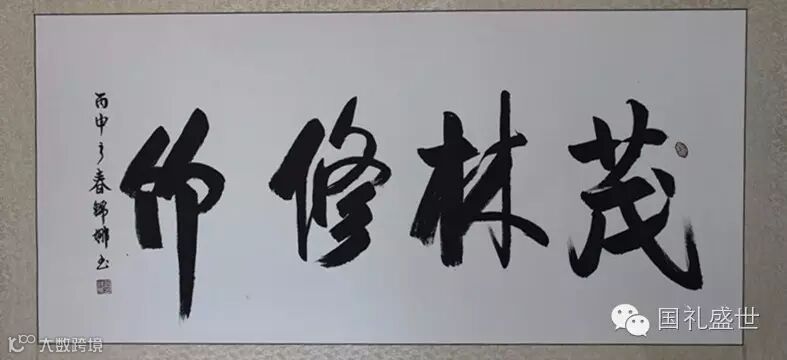 茂林修竹
丙申之春锦娣书
国礼盛世
大数跨境